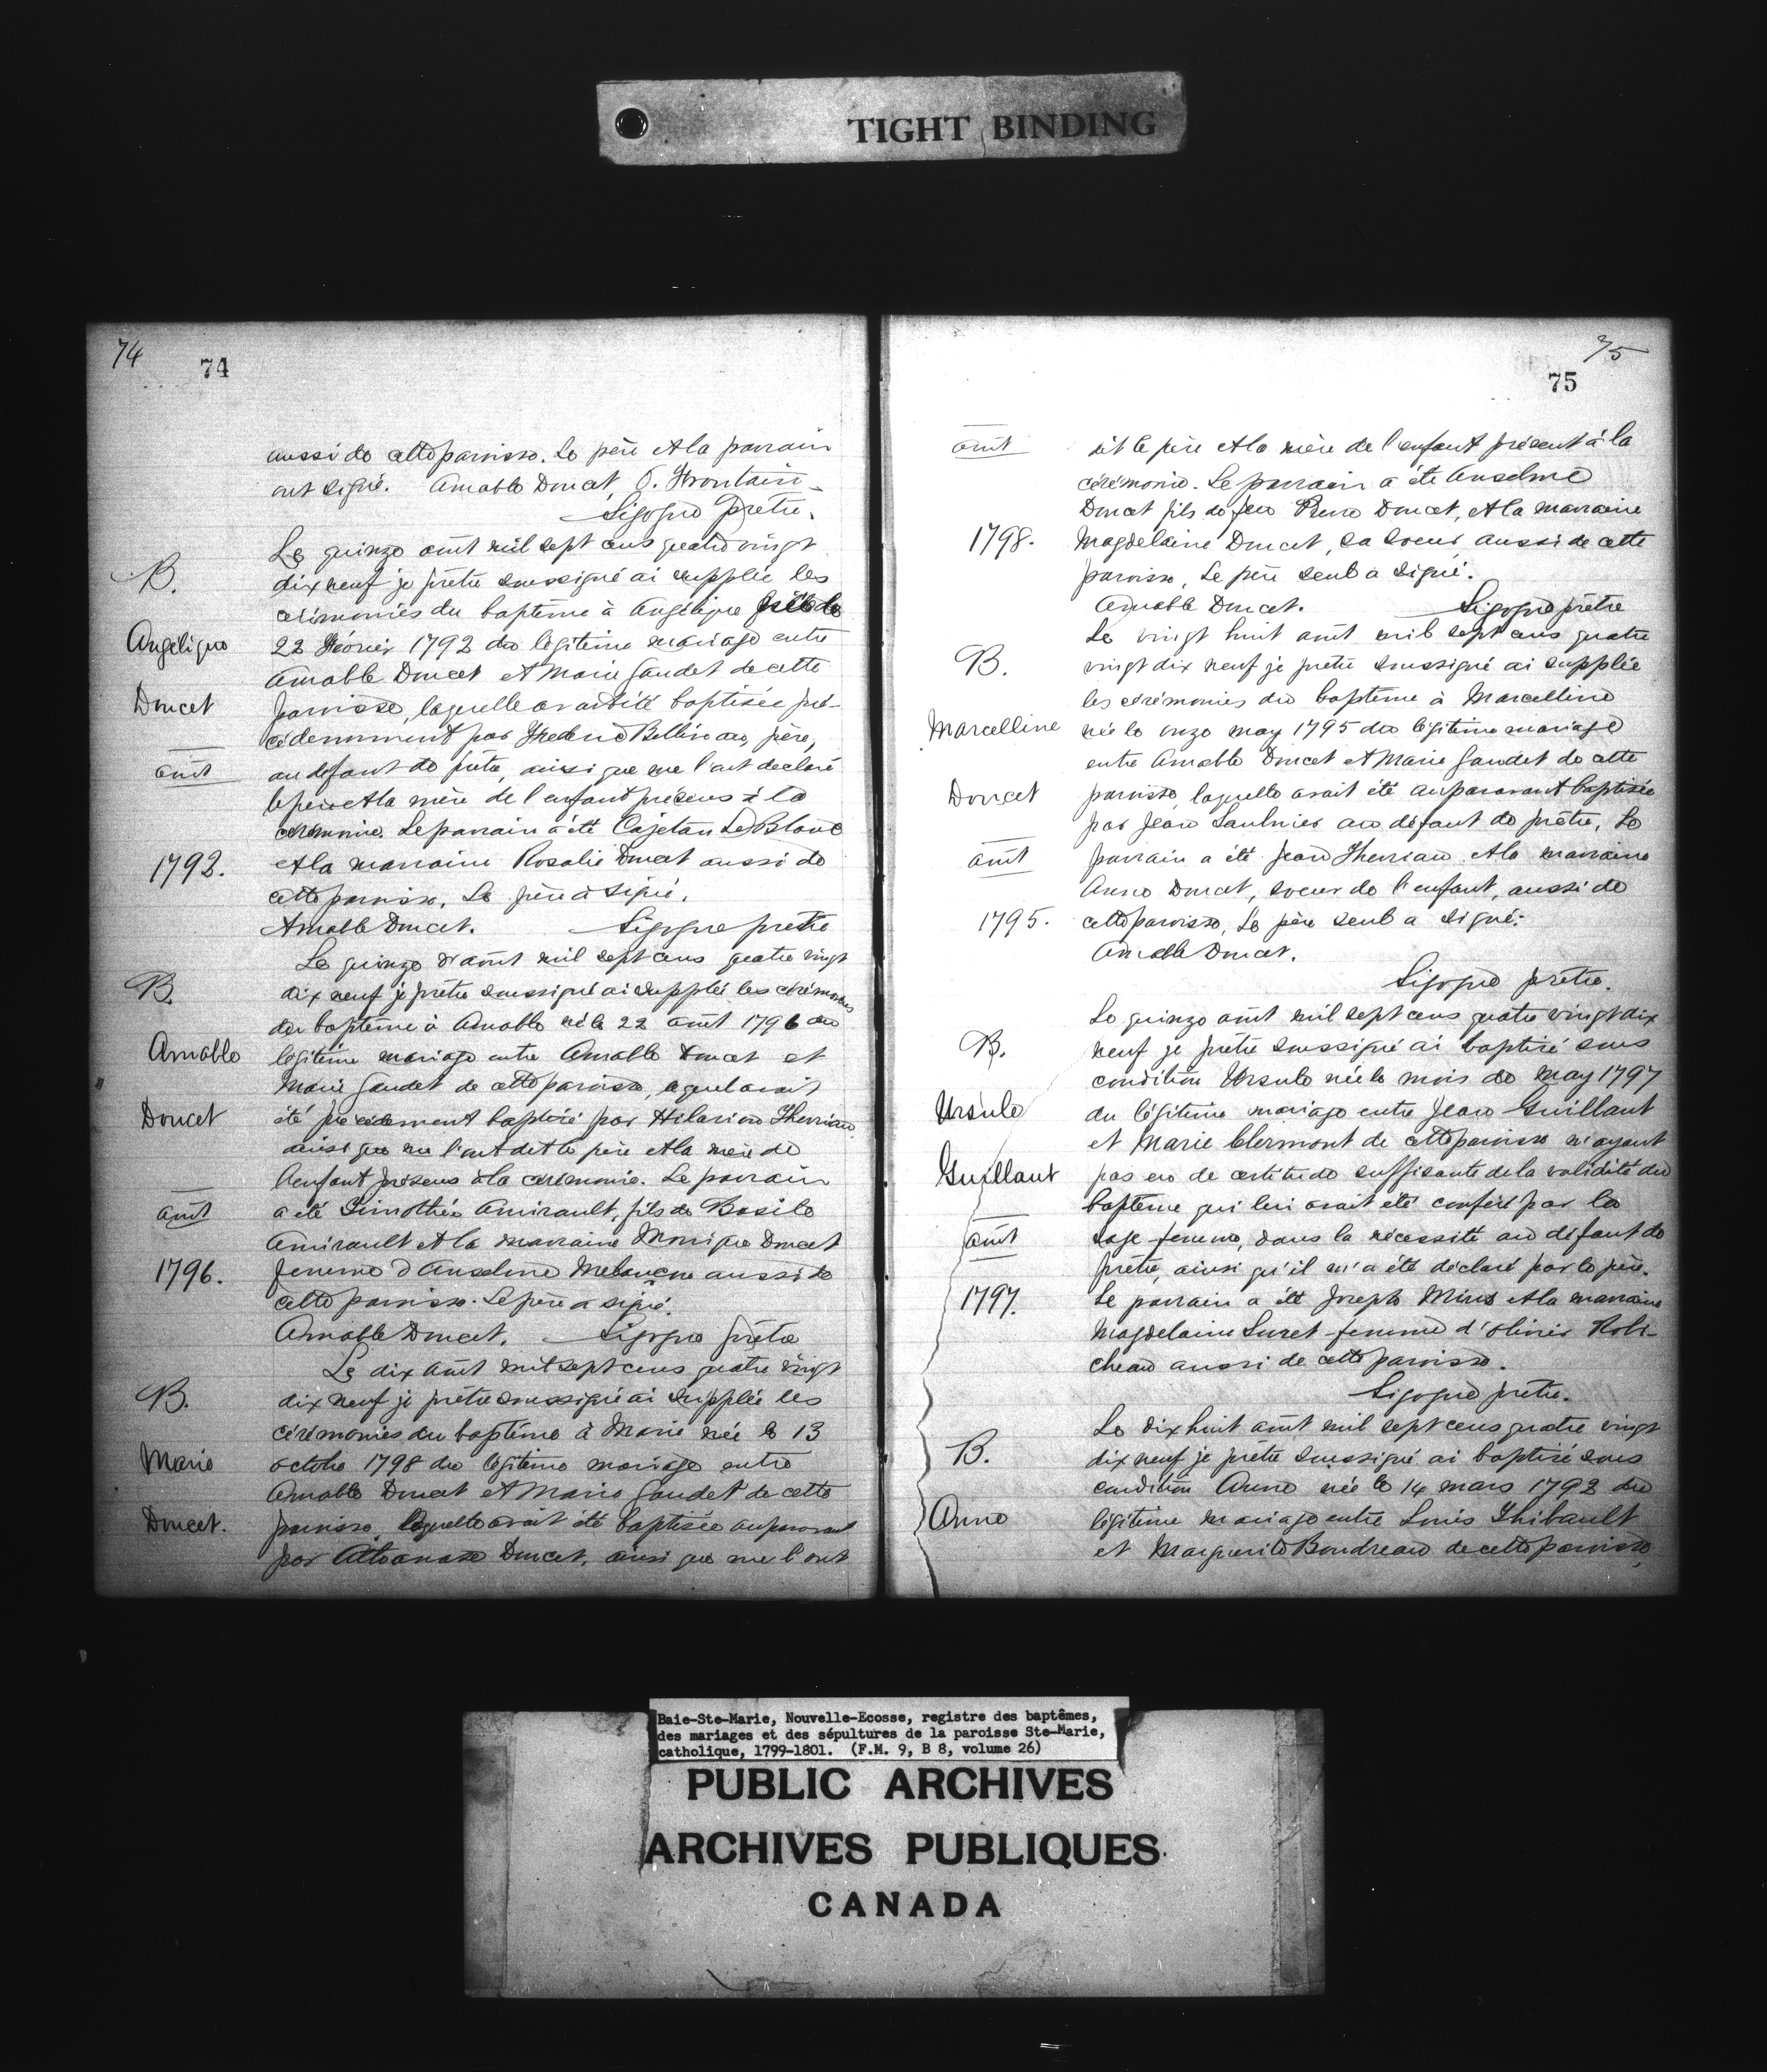 TIGHT BINDING
74
74
aussi de cette paroisse. Le père et la parrain
ont signé. Amable Doucet, O. Frontain
Sigogne prêtre.
Le quinze août mil sept cens quatre vingt
B.
dix neuf je prêtre soussigné ai supplée les
cérémonies du baptême à Angélique née le
Angélique
22 février 1792 du légitime mariage entre
Amable Doucet et Marie Gaudet de cette
Doucet
paroisse, laquelle avait été baptisée pré-
cédemment par Frederic Belliveau, père,
août
au défaut de prêtre, ainsi que me l'ont declaré
le père et la mère de l'enfant présens à la
cérémonie. Le parrain a été Cajetan Le Blanc
1792.
et la marraine Rosalie Doucet aussi de
cette paroisse. Le père a signé.
Amable Doucet. Sigogne prêtre
Le quinze d'août mil sept cens quatre vingt
B.
dix neuf je prêtre soussigné ai supplée les cérémonies
du baptême à Amable né le 22 août 1796 du
Amable
légitime mariage entre Amable Doucet et
Marie Gaudet de cette paroisse, lequel avait
Doucet
été précédemment baptisé par Hilarion Therriau,
ainsi que me l'ont dit le père et la mère de
l'enfant présens à la cérémonie. Le parrain
août
a été Timothée Amirault, fils de Basile
Amirault et la marraine Monique Doucet
1796.
femme d'Anselme Melançon aussi de
cette paroisse. Le père a signé.
Amable Doucet. Sigogne prêtre
Le dix août mil sept cens quatre vingt
B.
dix neuf je prêtre soussigné ai supplée les
cérémonies du baptême à Marie née le 13
Marie
octobre 1798 du légitime mariage entre
Amable Doucet et Marie Gaudet de cette
Doucet.
paroisse, laquelle avait été baptisée auparavant
par Athanase Doucet, ainsi que me l'ont
75
75
août
dit le père et la mère de l'enfant présent à la
cérémonie. Le parrain a été Anselme
Doucet fils de feu Pierre Doucet, et la marraine
1798.
Magdelaine Doucet, sa soeur, aussi de cette
paroisse. Le père seul a signé.
Amable Doucet. Sigogne prêtre
Le vingt huit août mil sept cens quatre
B.
vingt dix neuf je prêtre soussigné ai supplée
les cérémonies du baptême à Marcelline
Marcelline
née le onze may 1795 du légitime mariage
entre Amable Doucet et Marie Gaudet de cette
Doucet
paroisse, laquelle avait été auparavant baptisée
par Jean Saulnier au défaut de prêtre. Le
août
parrain a été Jean Therriau et la marraine
Anne Doucet, soeur de l'enfant, aussi de
1795.
cette paroisse. Le père seul a signé.
Amable Doucet.
Sigogne prêtre.
Le quinze août mil sept cens quatre vingt dix
B.
neuf je prêtre soussigné ai baptisé sous
condition Ursule née le mois de may 1797
Ursule
du légitime mariage entre Jean Guillant
et Marie Clermont de cette paroisse n'ayant
Guillant
pas eu de certitude suffisante de la validité du
baptême qui lui avait été conféré par la
août
sage-femme, dans la nécessité au défaut de
prêtre, ainsi qu'il m'a été déclaré par le père.
1797.
Le parrain a été Joseph Mius et la marraine
Magdelaine Suret femme d'Olivier Robi-
cheau aussi de cette paroisse.
Sigogne prêtre.
Le dix huit août mil sept cens quatre vingt
B.
dix neuf je prêtre soussigné ai baptisé sous
condition Anne née le 14 mars 1792 du
Anne
légitime mariage entre Louis Thibault
et Marguerite Boudreau de cette paroisse,
Baie-Ste-Marie, Nouvelle-Ecosse, registre des baptêmes,
des mariages et des sépultures de la paroisse Ste-Marie,
catholique, 1799-1801. (F.M. 9, B 8, volume 26)
PUBLIC ARCHIVES
ARCHIVES PUBLIQUES
CANADA